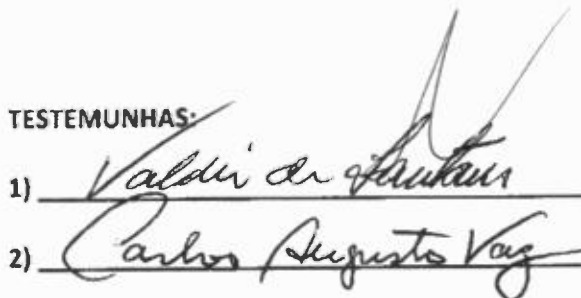 TESTEMUNHAS:
1) Valdir de Santana
2) Carlos Augusto Vaz